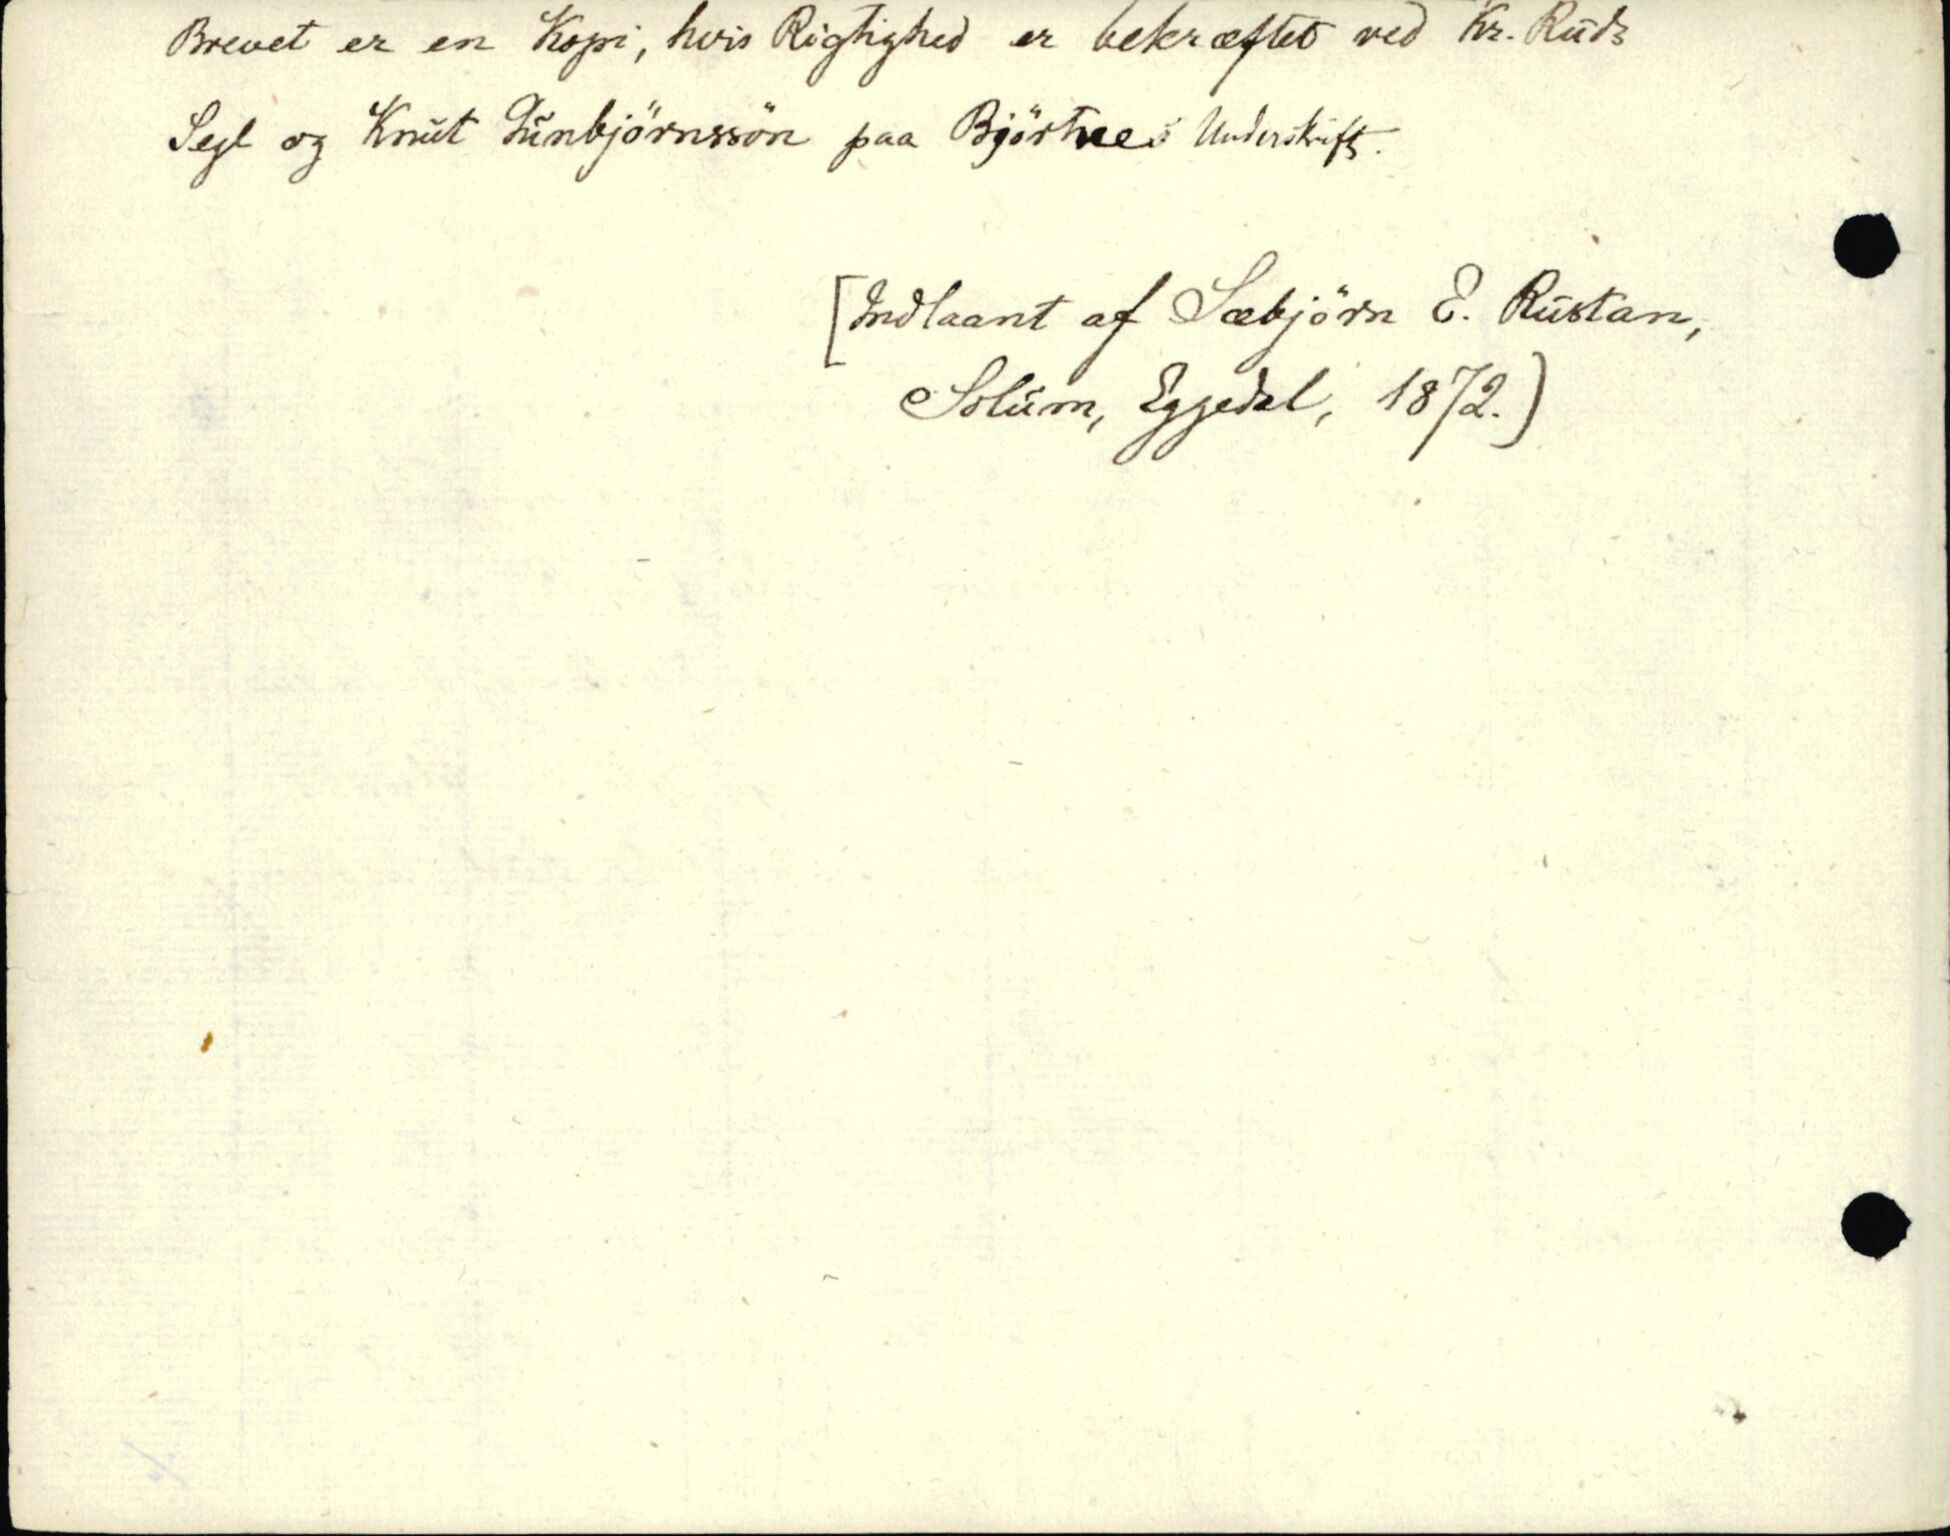 Brevet er en Kopi, hvis Rigtighed er bekræftet ved Kr. Ruds
Segl og Knut Gunbjörnssön paa Björtnes Underskrift.
[Indlaant af Sæbjörn E. Rustan,
Solum, Eggedal, 1872.)